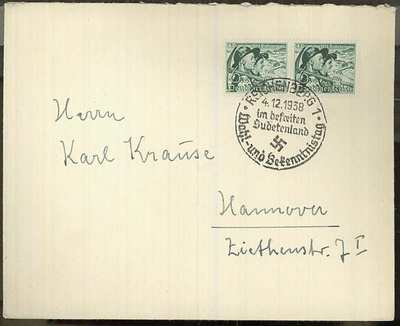 REICHENBERG 1
4.12.1938
im befreiten
Sudetenland
Wahl- und Bekenntnistag
Herrn
Karl Krause
Hannover
Ziethenstr. 7 I